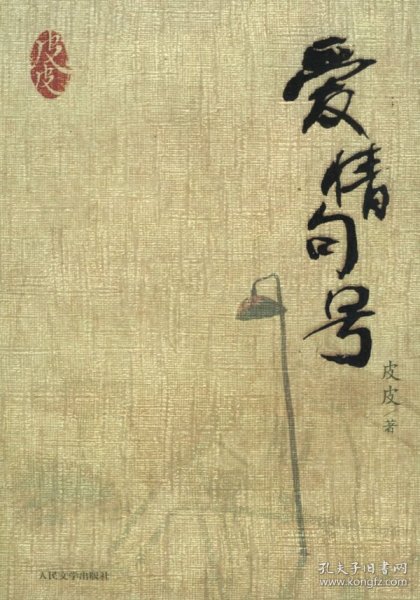 皮皮
爱情句号
皮皮 著
人民文学出版社
孔夫子旧书网
www.kongfz.com